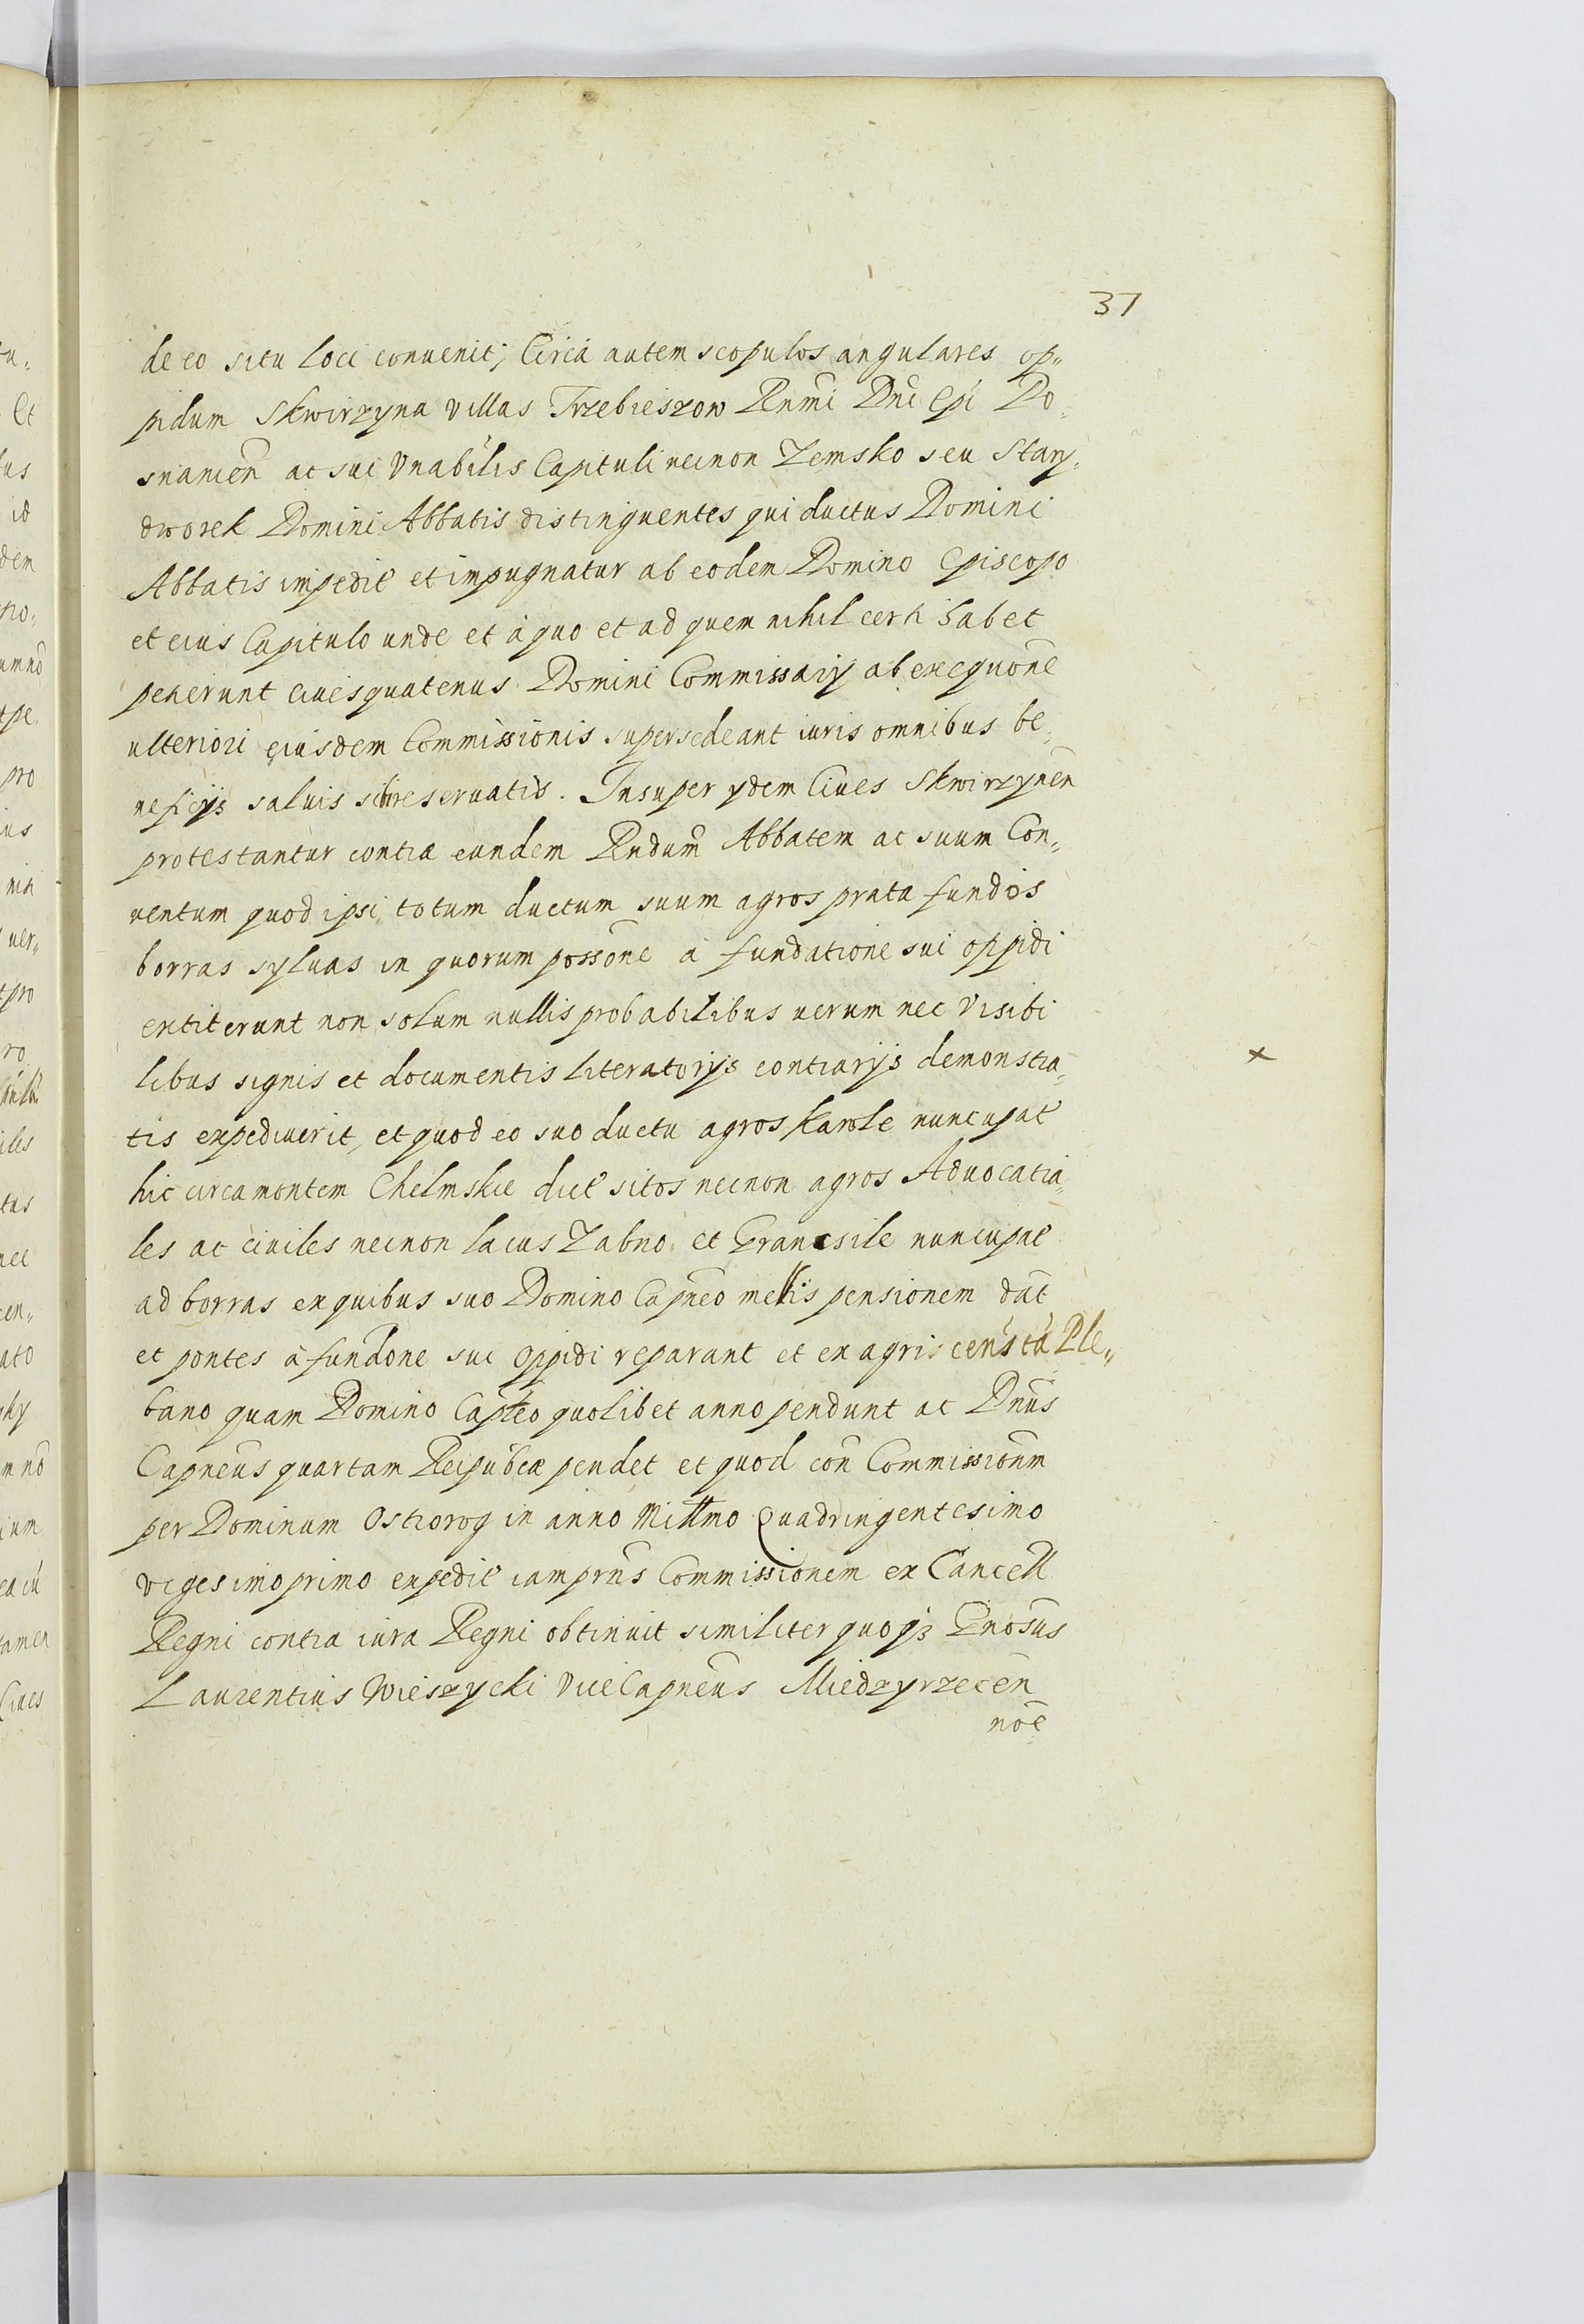 37
de eo situ loci convenit; Circa autem scopulos angulares op„
pidum Skwirzyna villas Trzebieszow Rnmi Dni Epi Po„
snanien ac sui Vnabilis Capituli necnon Zemsko seu Stary„
dworek Domini Abbatis distinguentes qui ductus Domini
Abbatis impedit et impugnatur ab eodem Domino Episcopo
et eius Capitulo unde et à quo et ad quem nihil certi habet
petierunt ciues quatenus Domini Commissarÿ ab exequone
ulteriori eiusdem Commissionis supersedeant iuris omnibus be„
neficÿs saluis sibi reseruatis. Insuper ÿdem Ciues Skwirzynen
protestantur contra eundem Rndum Abbatem ac suum Con„
uentum quod ipsi totum ductum suum agros prata fundos
borras syluas in quorum possone a fundatione sui oppidi
extiterunt non solum nullis probabilibus uerum nec visibi
libus signis et documentis literatorÿs contrarÿs demonstra„
tis expediuerit, et quod eo suo ductu agros Karole nuncupat
hic circa montem Chelmskie dict sitos necnon agros Aduocatia„
les ac ciuiles necnon lacus Zabno et Grancsile nuncupat
ad borras ex quibus suo Domino Capneo mellis pensionem dat
et pontes à fundone sui oppidi reparant et ex agris cens tu Ple„
bano quam Domino Capteo quolibet anno pendunt ac Dnus
Capneus quartam Reipublcæ pendet et quod con Commissionm
per Dominum Ostrorog in anno Millmo Quadringentesimo
vigesimo primo expedit iam prns Commissionem ex Cancell
Regni contra iura Regni obtinuit similiter quoqꝫ Gnosus
Laurentius Wieszycki Vice Capneus Miedzyrzecen
noe